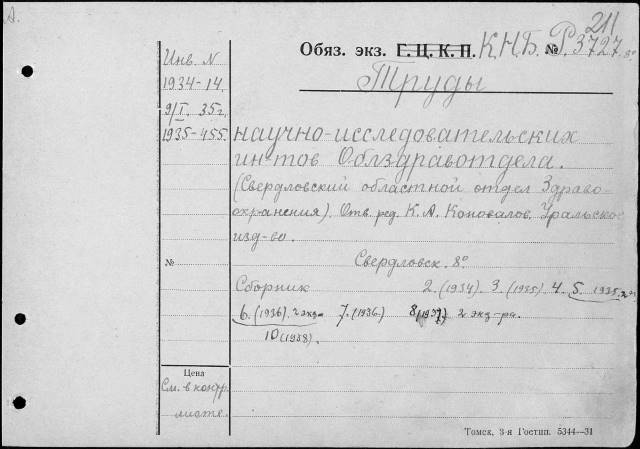 А.
211
Обяз. экз. Г. Ц. К. П. К.Н.Б. № Р.3727. 8°
Труды
Инв. N
1934-14.
9/I. 35г.
1935-455.
научно-исследовательских
ин-тов Облздравотдела.
(Свердловский областной отдел Здраво-
охранения). Отв. ред. К. А. Коновалов. Уральское
изд-во.
№
Свердловск. 8°
Сборник 2. (1934). 3. (1935) 4. 5. 1935.
6. (1936). 2 экз- 7. (1936) 8 (1937) 2 экз-ра.
10 (1938).
Цена
См. в контр.
листе.
Томск, 3-я Гостип. 5344—31